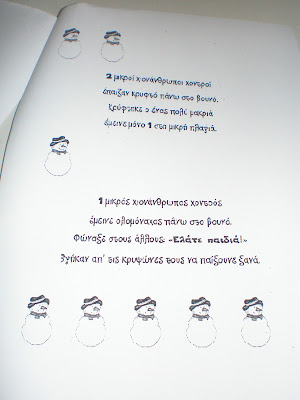 2 μικροί χιονάνθρωποι χοντροί
έπαιζαν κρυφτό πάνω στο βουνό.
Κρύφτηκε ο ένας πολύ μακριά
έμεινε μόνο 1 στη μικρή πλαγιά.
1 μικρός χιονάνθρωπος χοντρός
έμεινε ολομόναχος πάνω στο βουνό.
Φώναξε στους άλλους: «Ελάτε παιδιά!»
Βγήκαν απ' τις κρυψώνες τους να παίξουνε ξανά.